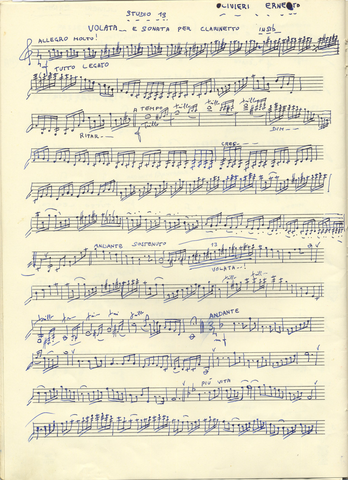 STUDIO 19 OLIVIERI ERNESTO
VOLATA E SONATA PER CLARINETTO IN SIb
ALLEGRO MOLTO!
TUTTO LEGATO
A TEMPO trill
RITAR. trill DIM
CRES.
BALLANTE SOSTENUTO 13
VOLATA
trill trill
trill trill ANDANTE
PIÙ VITA